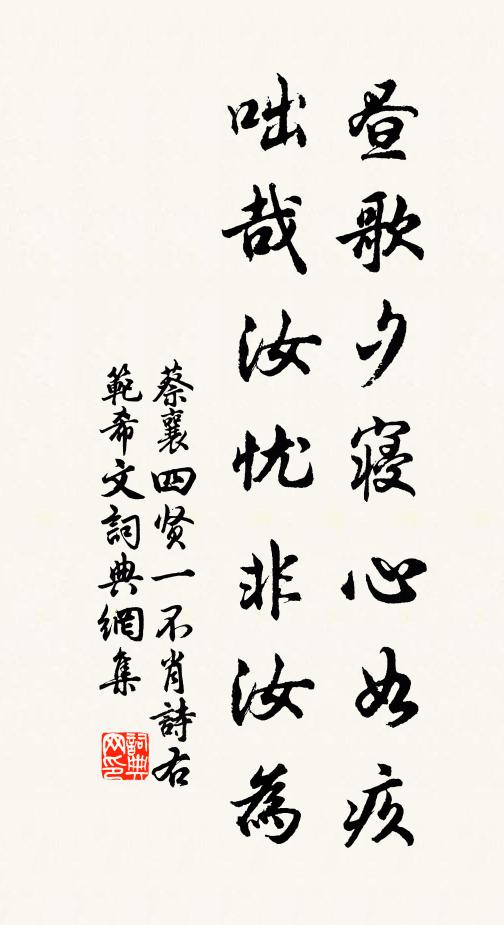 昼歌夕寝心如疚
咄哉汝忧非汝為
蔡襄四贤一不肖詩右
範希文詞典網集
詞典
网印